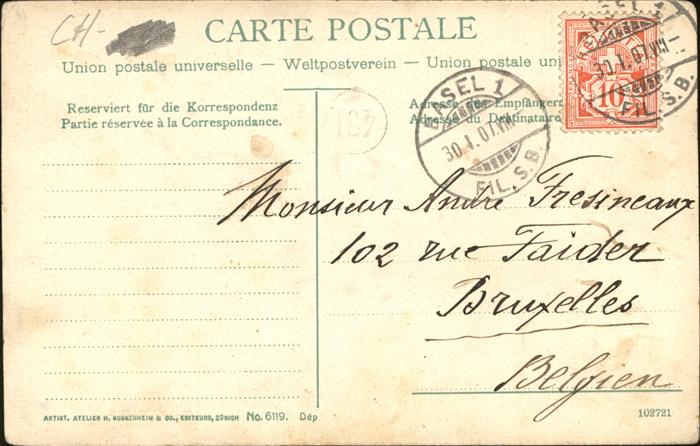 CH-
CARTE POSTALE
Union postale universelle — Weltpostverein — Union postale uni
Reserviert für die Korrespondenz
Partie réservée à la Correspondance.
Adresse des Empfängers
Adresse du Destinataire
BASEL 1
30.I.07.VIII
FIL. S.B.
BASEL 1
30.I.07.VIII
FIL. S.B.
10
421
Monsieur André Fresineaux
102 rue Faider
Bruxelles
Belgien
ARTIST. ATELIER H. GUGGENHEIM & CO., EDITEURS, ZÜRICH No. 6119. Dép.
102721